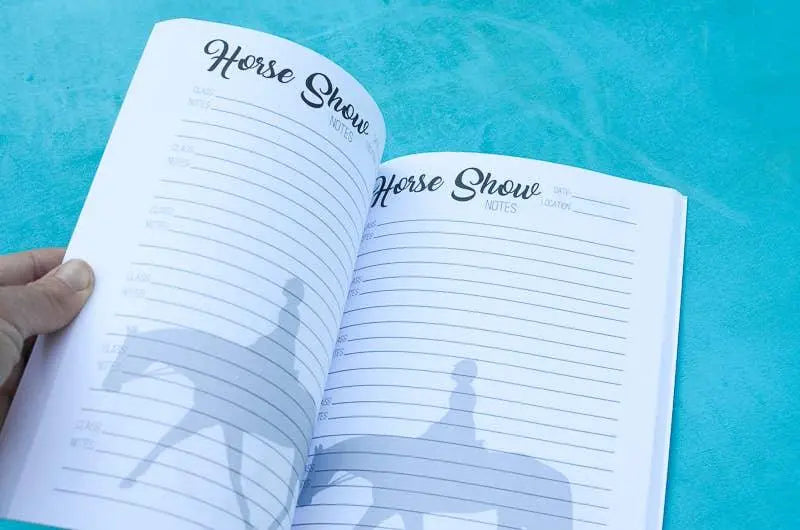 Horse Show
NOTES
CLASS
NOTES
CLASS
NOTES
CLASS
NOTES
CLASS
NOTES
CLASS
NOTES
CLASS
NOTES
Horse Show
NOTES
DATE
LOCATION